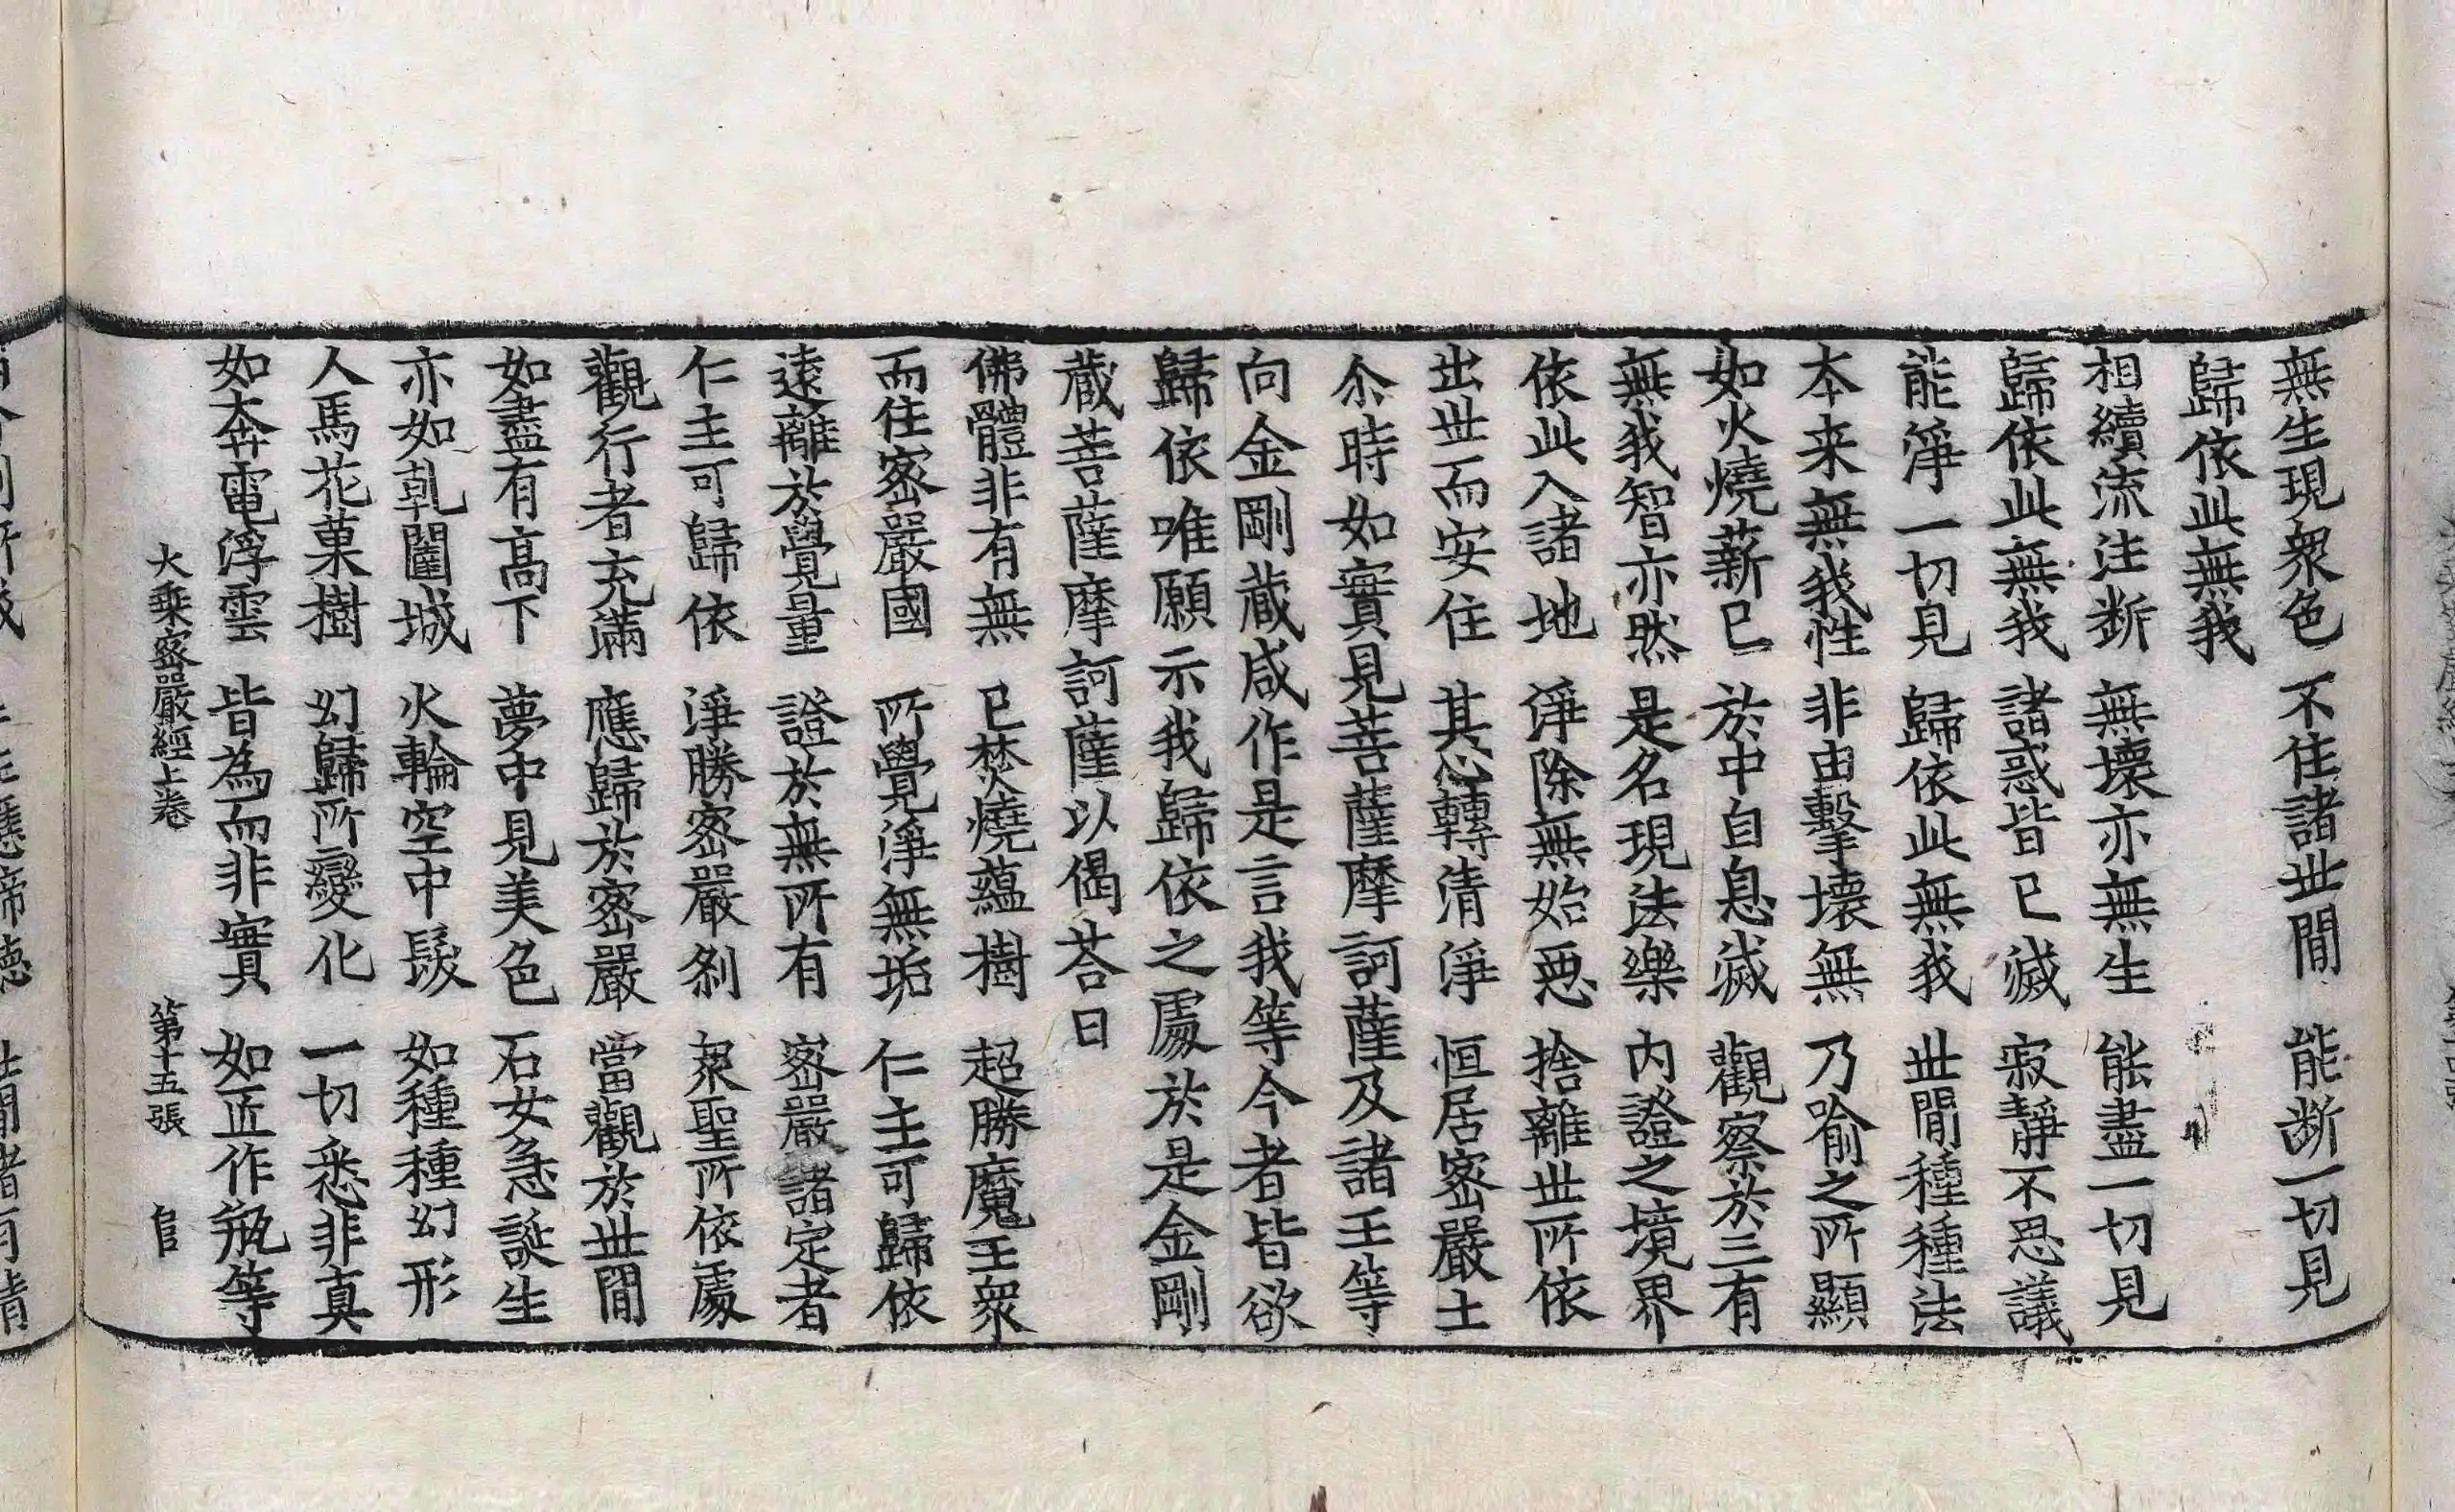 無生現衆色 不住諸世間 能斷一切見
歸依此無我
相續流注断 無壞亦無生 能盡一切見
歸依此無我 諸惑皆已滅 寂靜不思議
能淨一切見 歸依此無我 世間種種法
本来無我性 非由擊壞無 乃喻之所顯
如火燒薪已 於中自息滅 觀察於三有
無我智亦然 是名現法樂 内證之境界
依此入諸地 淨除無始惡 捨離世所依
出世而安住 其心轉清淨 恒居密嚴土
尒時如實見菩薩摩訶薩及諸王等
向金剛藏咸作是言我等今者皆欲
歸依唯願示我歸依之處於是金剛
藏菩薩摩訶薩以偈荅曰
佛體非有無 已焚燒蘊樹 超勝魔王衆
而住密嚴國 所覺淨無垢 仁主可歸依
遠離於覺量 證於無所有 密嚴諸定者
仁主可歸依 淨勝密嚴刹 衆聖所依處
觀行者充滿 應歸於密嚴 當觀於世間
如畫有高下 夢中見美色 石女急誕生
亦如乹闥城 火輪空中髮 如種種幻形
人馬花菓樹 幻歸所變化 一切悉非真
如奔電浮雲 皆為而非實 如匠作瓶等
大乗密嚴經上卷 第十五張